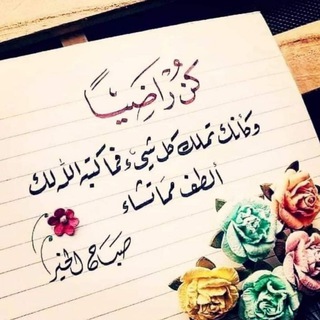 كن رَاضِيًا
وكأنك تملك كل شيء فما كتبه الله لك
ألطف مما تشاء
صباح الخير